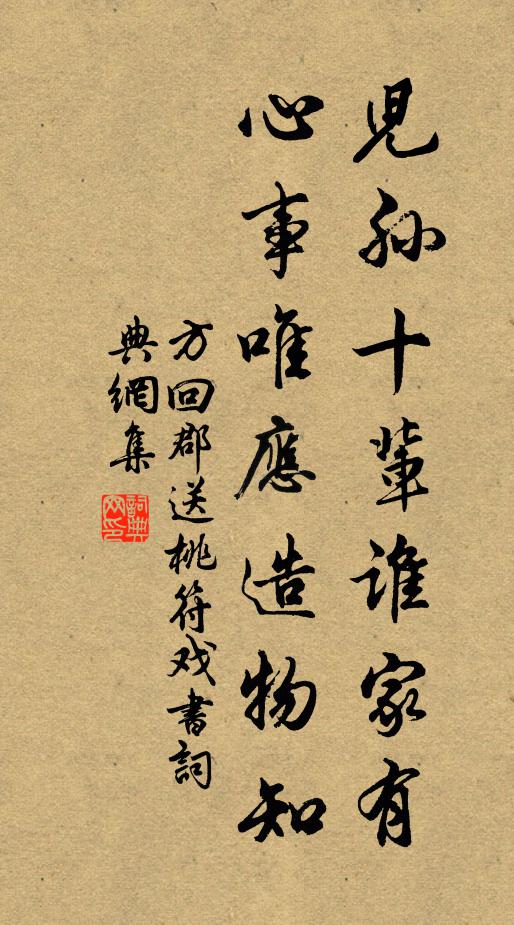 児孫十輩誰家有
心事唯應造物知
方回郡送桃符戏書詞
典網集
詞典网印